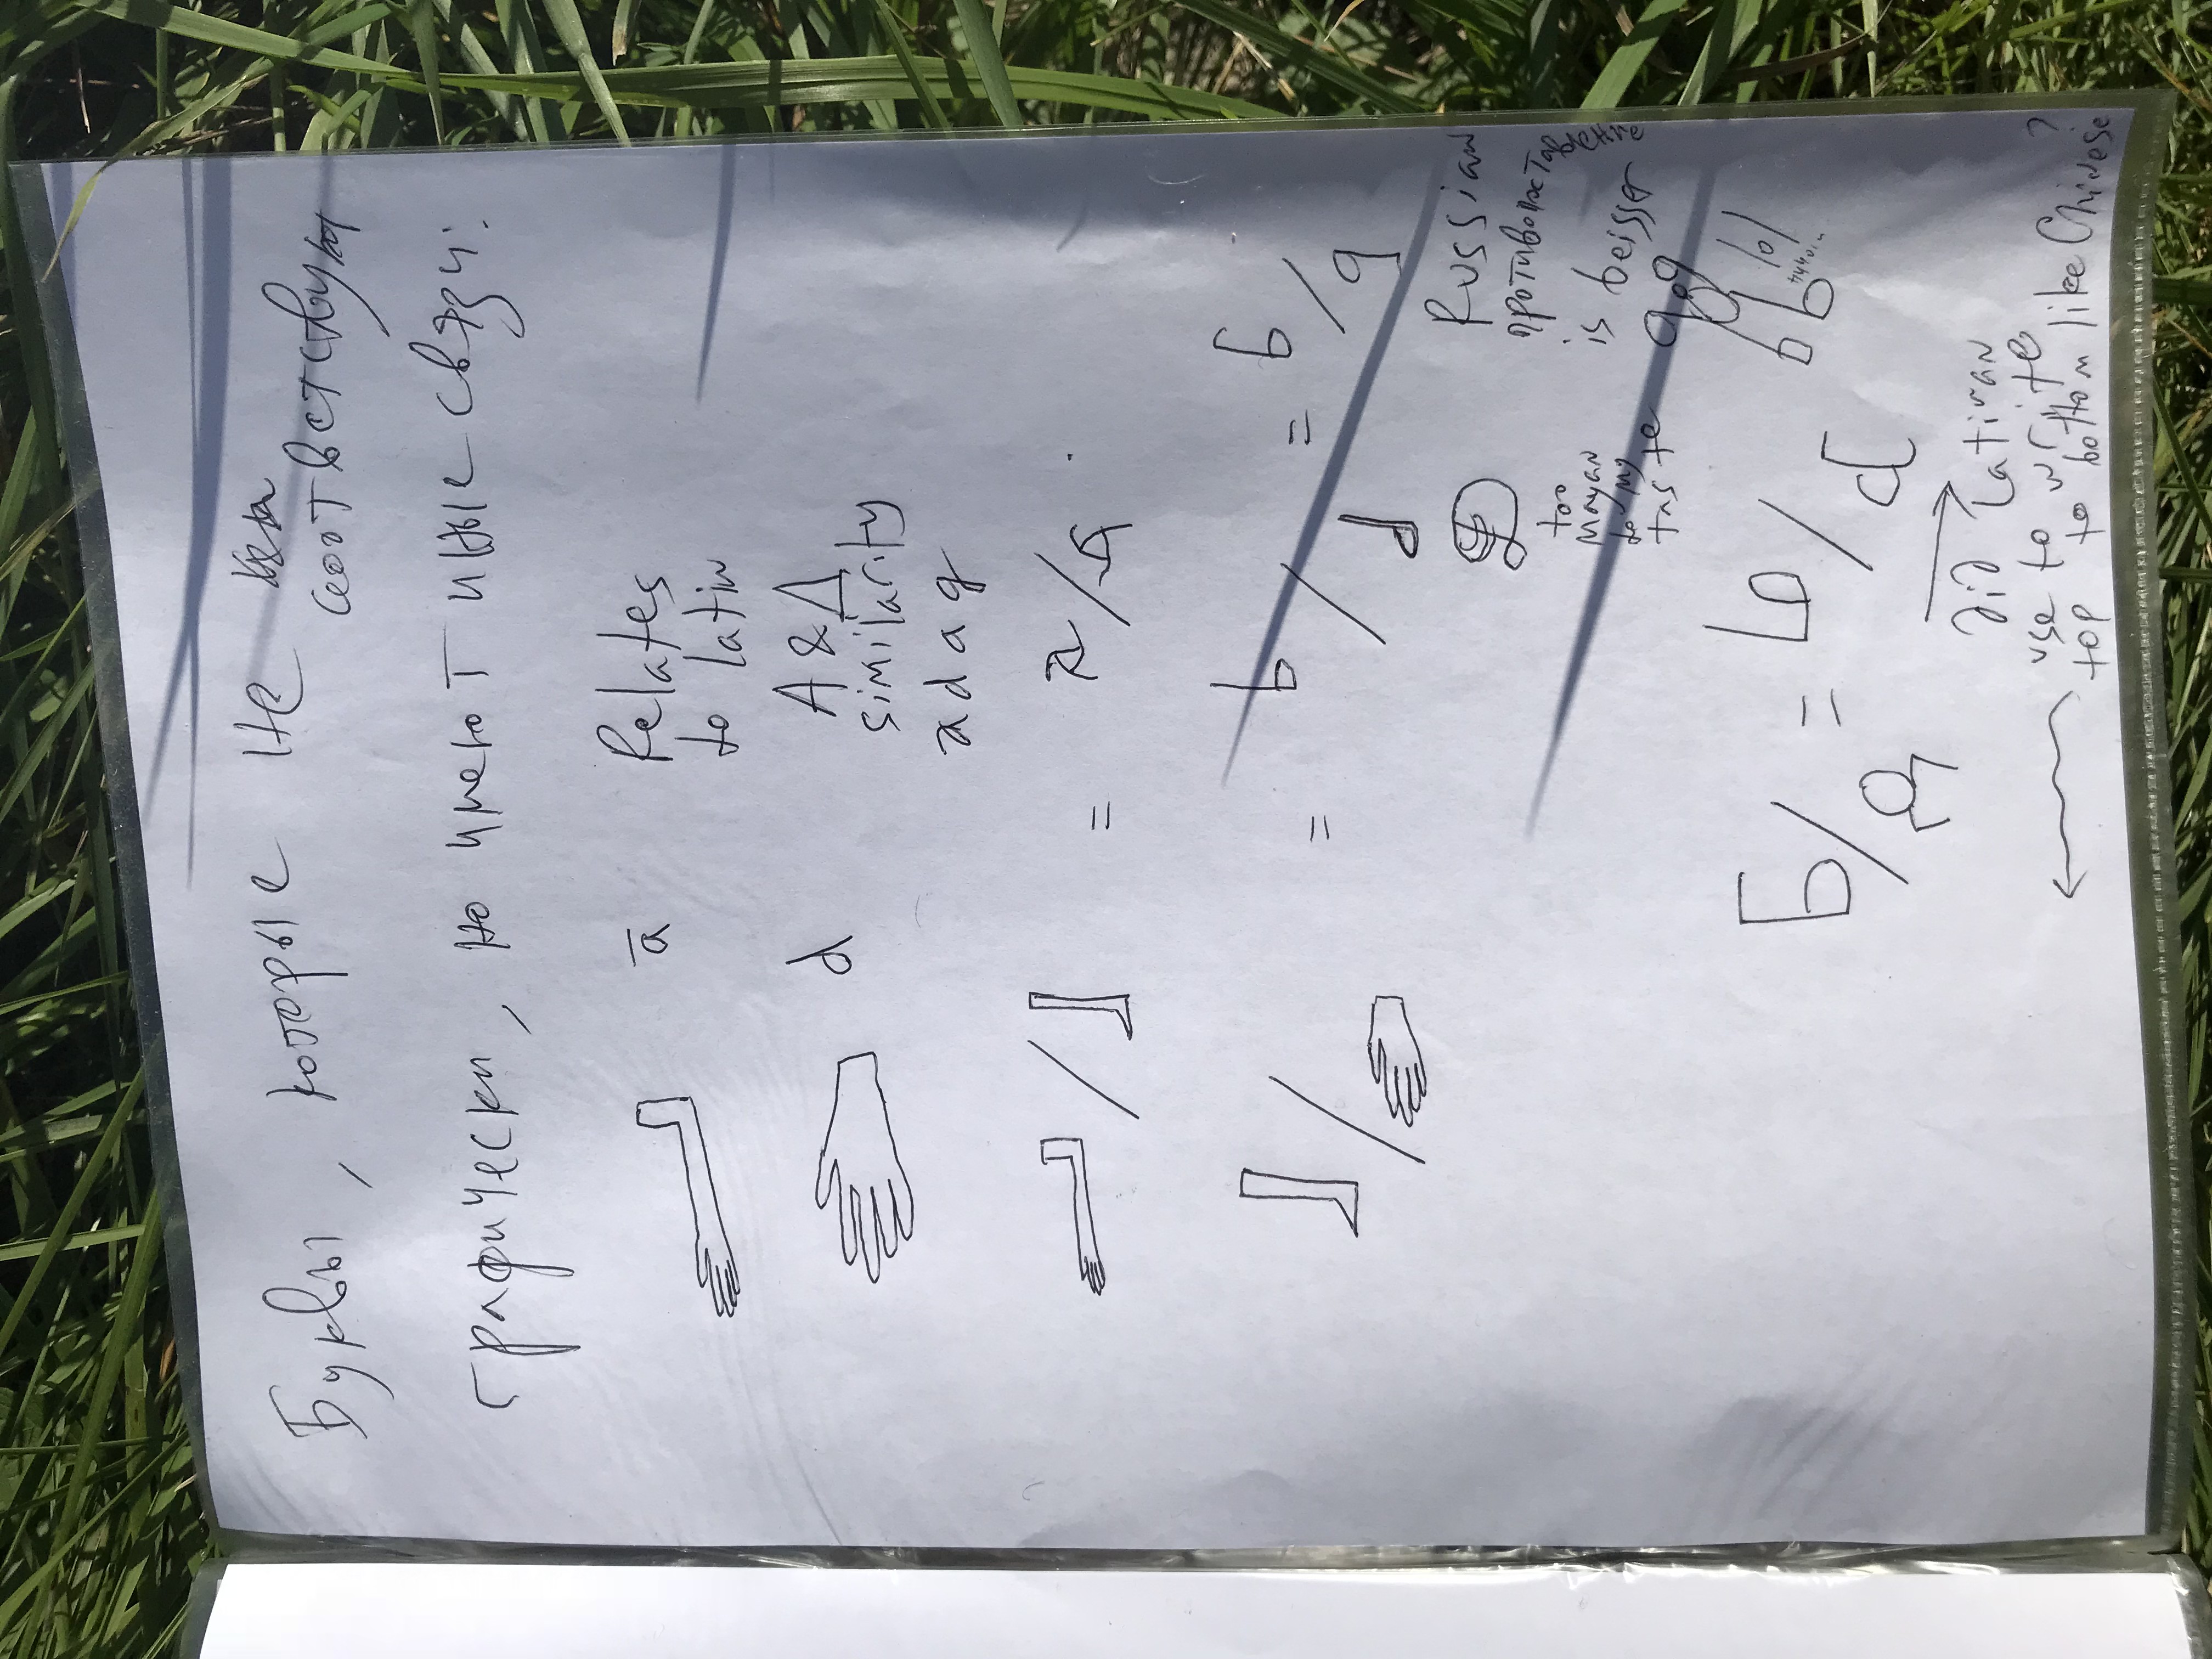 Буквы, которые не
соответствуют
графически, но имеют иные связи:
ā Relates
to latin
d A & Д
similarity
a d a g
/ = a/a
/ = b/d = б/g
too
Mayan
to my
taste
Russian
противопоставление
is beisser
Б/ = b/d
did Latinan
use to write
top to bottom like Chinese?